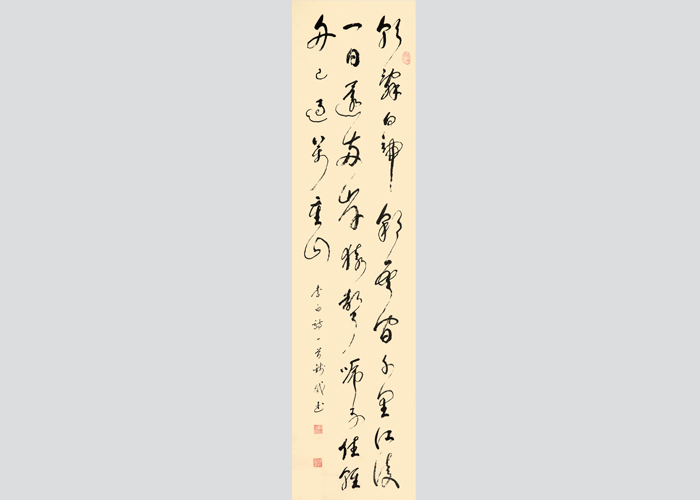 朝辭白帝彩雲間千里江陵
一日還兩岸猿聲啼不住輕
舟已過萬重山
李白詩一首